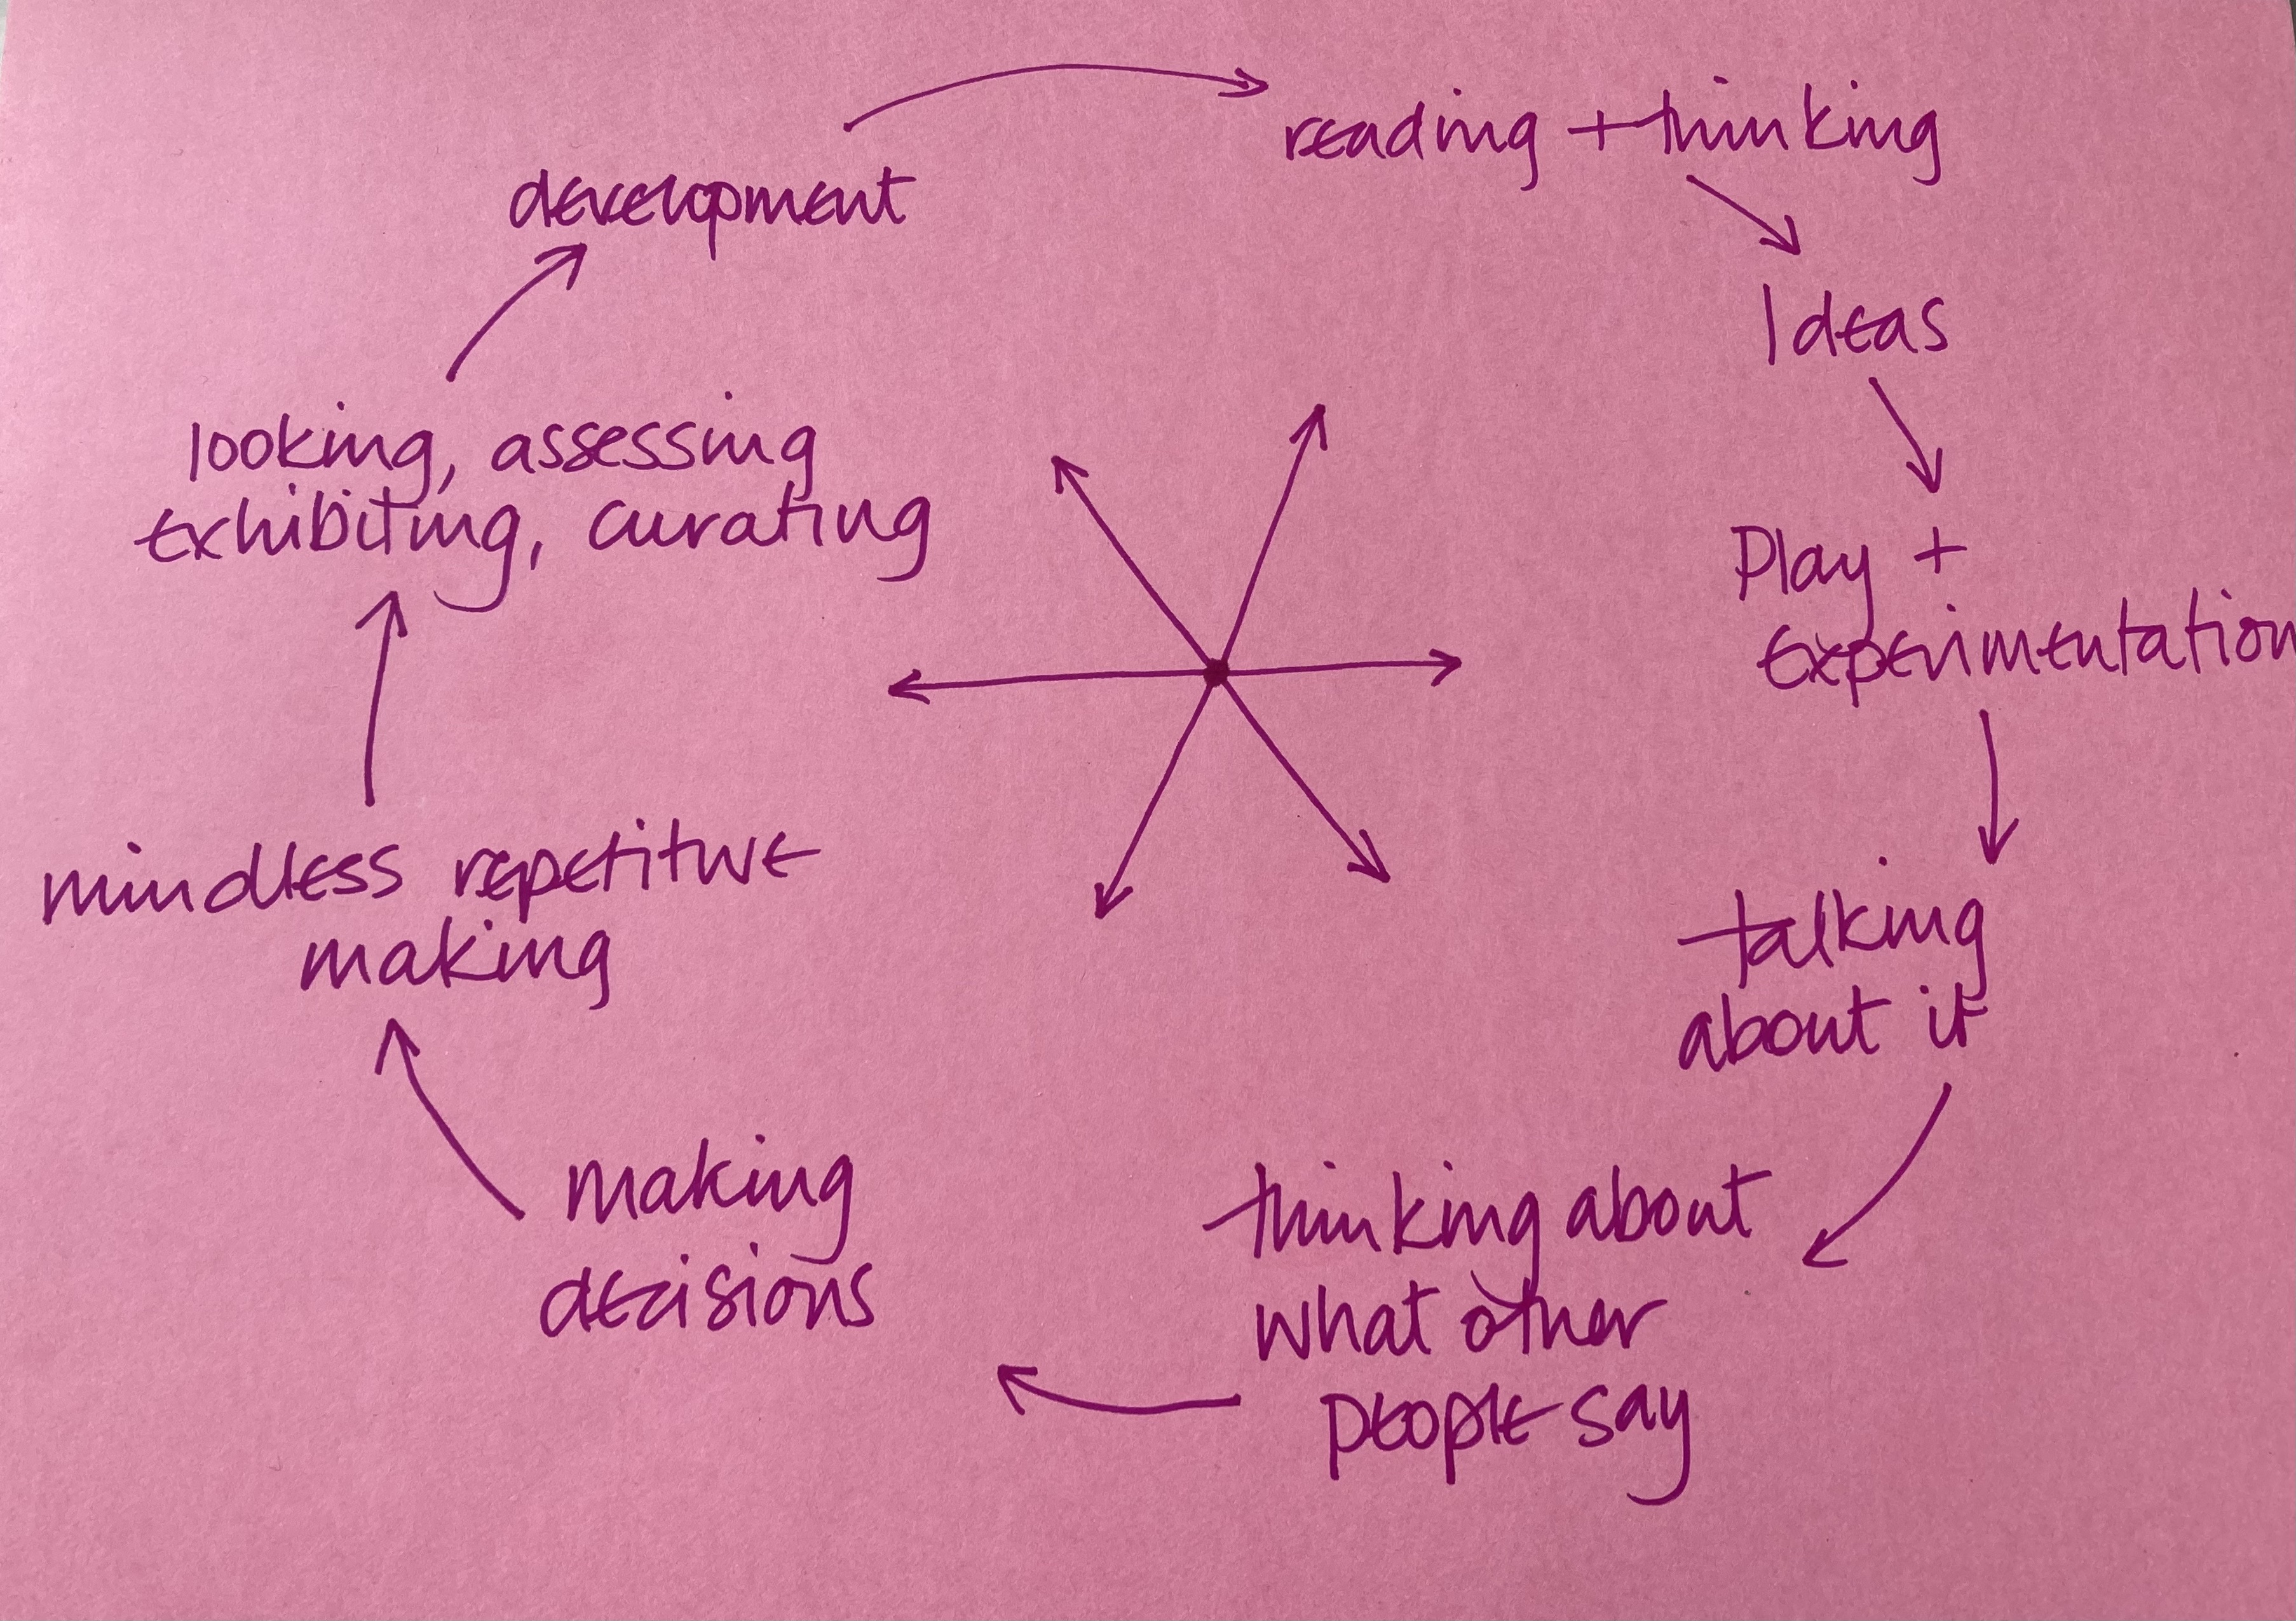 development
reading + thinking
Ideas
Play +
experimentation
talking
about it
thinking about
what other
people say
making
decisions
mindless repetitive
making
looking, assessing
exhibiting, curating